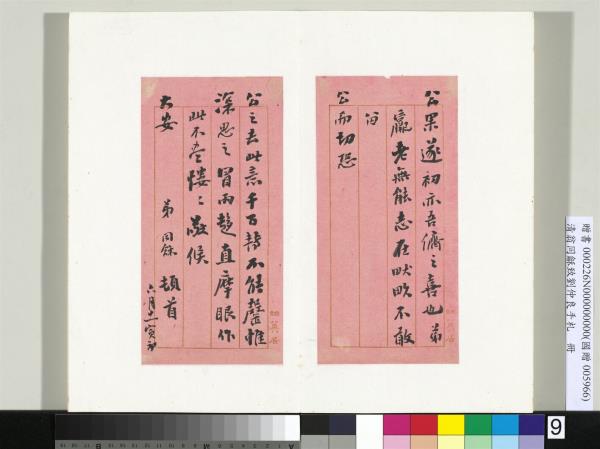 公果遂初亦吾儕之喜也弟
羸老無能志在畎畝不敢
公而切恐
公之去此意千百轉不能罄惟
深思之冒雨趨直摩眼作
此不盡慺〻敬候
大安
弟同龢頓首
六月十一寅初
贈書 000226N000000000(國贈 005966)
清翁同龢致劉仲良手札 冊
9